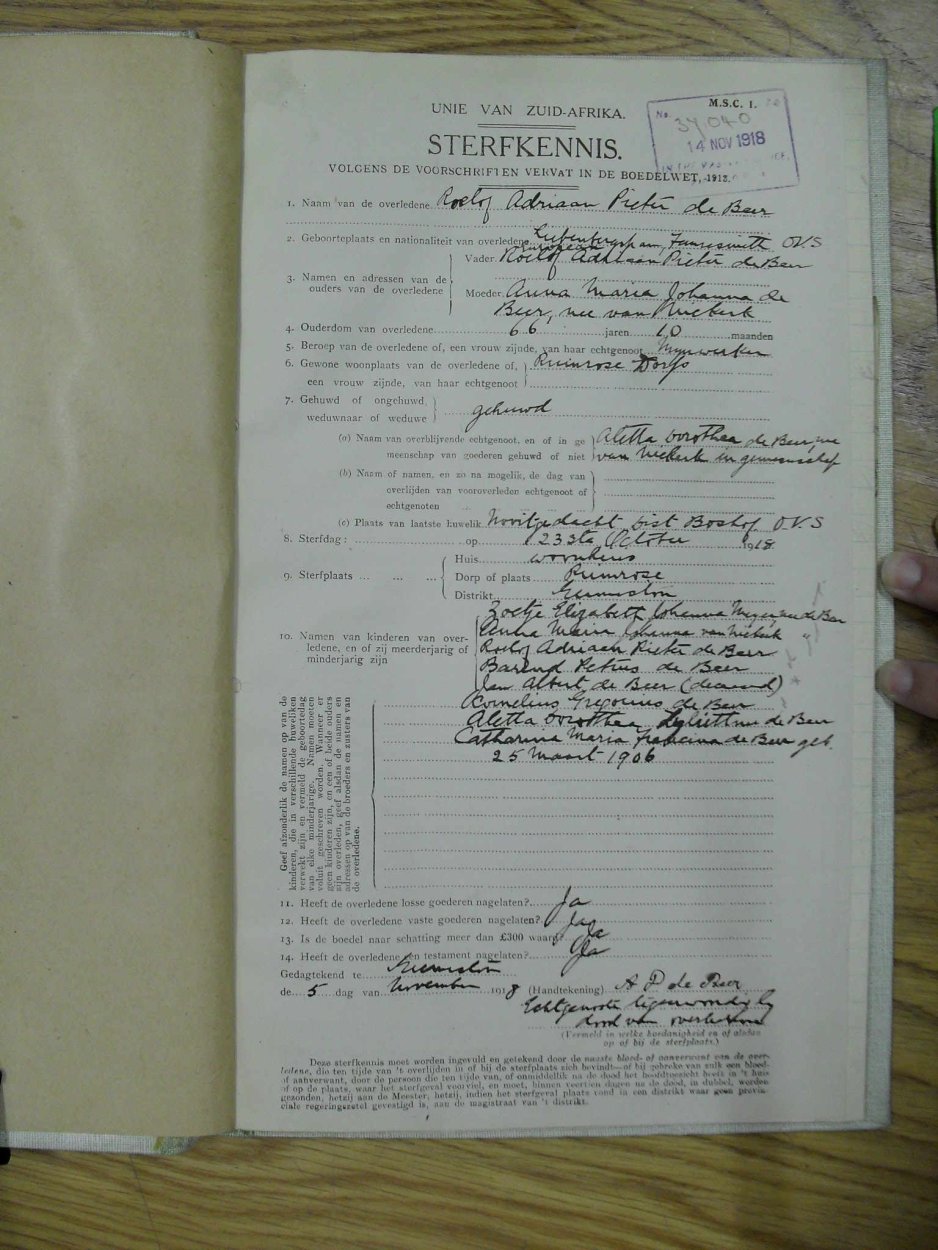 M.S.C. 1.
UNIE VAN ZUID-AFRIKA.
No. 37040
14 NOV 1918
STERFKENNIS.
VOLGENS DE VOORSCHRIFTEN VERVAT IN DE BOEDELWET, 1913.
1. Naam van de overledene Roelof Adriaan Pieter de Beer
2. Geboorteplaats en nationaliteit van overledene Fauresmith O.V.S
European
3. Namen en adressen van de ouders van de overledene
Vader Roelof Adriaan Pieter de Beer
Moeder Anna Maria Johanna de
Beer, nee van Niekerk
4. Ouderdom van overledene 66 jaren 10 maanden
5. Beroep van de overledene of, een vrouw zijnde, van haar echtgenoot Mynwerker
6. Gewone woonplaats van de overledene of, Primrose Dorp
een vrouw zijnde, van haar echtgenoot
7. Gehuwd of ongehuwd, weduwnaar of weduwe gehuwd
(a) Naam van overblijvende echtgenoot, en of in ge Aletta Dorothea de Beer, nee
meenschap van goederen gehuwd of niet van Niekerk in gemeenschap
(b) Naam of namen, en zo na mogelik, de dag van
overlijden van vooroverleden echtgenoot of
echtgenoten
(c) Plaats van laatste huwelik Nooitgedacht Dist Boshof O.V.S
8. Sterfdag: op 23ste October 1918
9. Sterfplaats
Huis woonhuis
Dorp of plaats Primrose
Distrikt Germiston
10. Namen van kinderen van overledene, en of zij meerderjarig of minderjarig zijn
Elizabeth Johanna de Beer
Anna Maria Johanna van Niekerk "
Roelof Adriaan Pieter de Beer
Barend Petrus de Beer
Jan Albert de Beer (deceased)
Cornelius de Beer
Aletta Dorothea de Beer
Catharina Maria de Beer geb.
25 Maart 1906
Geef afzonderlik de namen op van de
kinderen, die in verschillende huweliken
verwekt zijn en vermeld de geboortedag
van elke minderjarige. Namen moeten
voluit geschreven worden. Wanneer er
geen kinderen zijn, en een of beide ouders
zijn overleden, geef alsdan de namen en
adressen op van de broeders en zusters van
de overledene.
11. Heeft de overledene losse goederen nagelaten? Ja
12. Heeft de overledene vaste goederen nagelaten? Ja
13. Is de boedel naar schatting meer dan £300 waard? Ja
14. Heeft de overledene een testament nagelaten? Ja
Gedagtekend te Germiston
de 5 dag van November 1918 (Handtekening) A D de Beer
Echtgenoote tegenwoordig by
dood van overledene
(Vermeld in welke hoedanigheid en of alsdan
op of bij de sterfplaats.)
Deze sterfkennis moet worden ingevuld en getekend door de naaste bloed- of aanverwant van de over-
ledene, die ten tijde van 't overlijden in of bij de sterfplaats zich bevindt—of bij gebreke van zulk een bloed-
of aanverwant, door de persoon die ten tijde van, of onmiddellik na de dood het hoofdtoezicht heeft in 't huis
of op de plaats, waar het sterfgeval voorviel, en moet, binnen veertien dagen na de dood, in dubbel, worden
gezonden, hetzij aan de Meester, hetzij, indien het sterfgeval plaats vond in een distrikt waar geen provin-
ciale regeringszetel gevestigd is, aan de magistraat van 't distrikt.